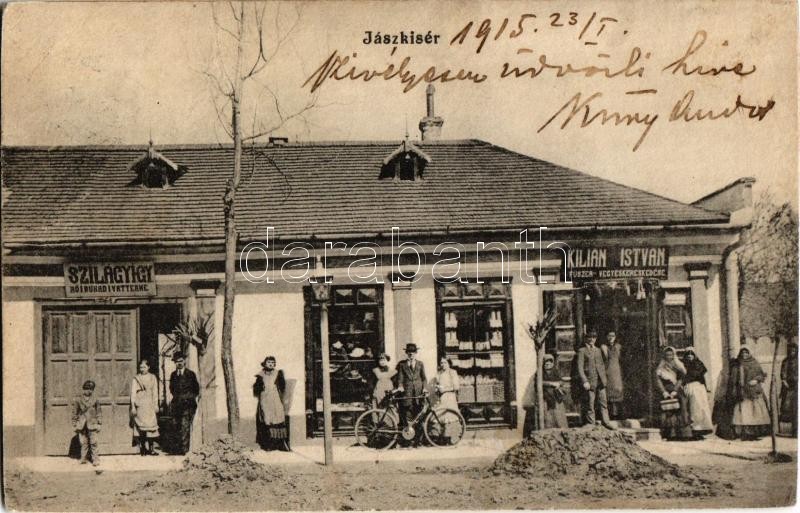 Jászkisér
1915. 23/I.
Szívélyesen üdvözli hive
Kúny Andor
SZILÁGYI GY
NŐI RUHADIVATTERME
KILIÁN ISTVÁN
FŰSZER- VEGYESKERESKEDÉSE
darabanth